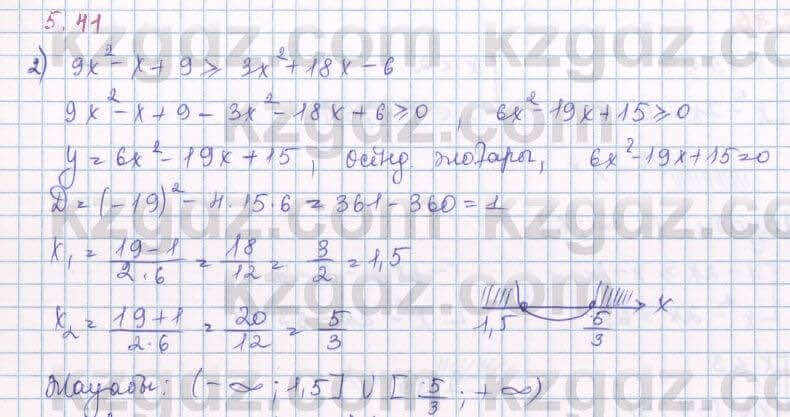 5.41
2) 9x²-x+9 ≥ 3x²+18x-6
9x²-x+9-3x²-18x+6 ≥ 0, 6x²-19x+15 ≥ 0
y = 6x²-19x+15, жоғары, 6x²-19x+15=0
D = (-19)²-4·15·6 = 361-360 = 1
x₁ = (19-1)/(2·6) = 18/12 = 3/2 = 1,5
x₂ = (19+1)/(2·6) = 20/12 = 5/3
1,5 5/3 x
Жауабы: (-∞; 1,5] ∪ [5/3; +∞)
kzgdz.com
kzgdz.com
kzgdz.com
kzgdz.com